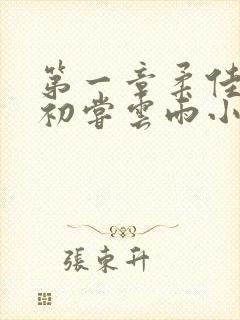 第一章柔佳
初嘗雲雨小
張東升